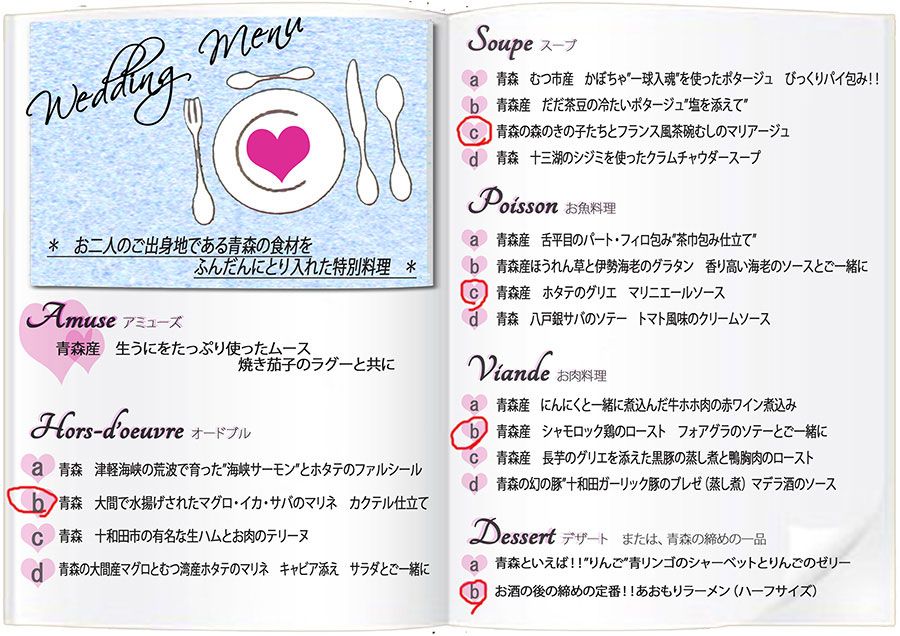 Wedding Menu
＊　お二人のご出身地である青森の食材を
ふんだんにとり入れた特別料理　＊
Amuse アミューズ
青森産　生うにをたっぷり使ったムース
焼き茄子のラグーと共に
Hors-d'oeuvre オードブル
a 青森　津軽海峡の荒波で育った"海峡サーモン"とホタテのファルシール
b 青森　大間で水揚げされたマグロ・イカ・サバのマリネ　カクテル仕立て
c 青森　十和田市の有名な生ハムとお肉のテリーヌ
d 青森の大間産マグロとむつ湾産ホタテのマリネ　キャビア添え　サラダとご一緒に
Soupe スープ
a 青森　むつ市産　かぼちゃ"一球入魂"を使ったポタージュ　びっくりパイ包み!!
b 青森産　だだ茶豆の冷たいポタージュ"塩を添えて"
c 青森の森のきの子たちとフランス風茶碗むしのマリアージュ
d 青森　十三湖のシジミを使ったクラムチャウダースープ
Poisson お魚料理
a 青森産　舌平目のパート・フィロ包み"茶巾包み仕立て"
b 青森産ほうれん草と伊勢海老のグラタン　香り高い海老のソースとご一緒に
c 青森産　ホタテのグリエ　マリニエールソース
d 青森　八戸銀サバのソテー　トマト風味のクリームソース
Viande お肉料理
a 青森産　にんにくと一緒に煮込んだ牛ホホ肉の赤ワイン煮込み
b 青森産　シャモロック鶏のロースト　フォアグラのソテーとご一緒に
c 青森産　長芋のグリエを添えた黒豚の蒸し煮と鴨胸肉のロースト
d 青森の幻の豚"十和田ガーリック豚のブレゼ（蒸し煮）マデラ酒のソース
Dessert デザート　または、青森の締めの一品
a 青森といえば!!"りんご"青リンゴのシャーベットとりんごのゼリー
b お酒の後の締めの定番!!あおもりラーメン（ハーフサイズ）